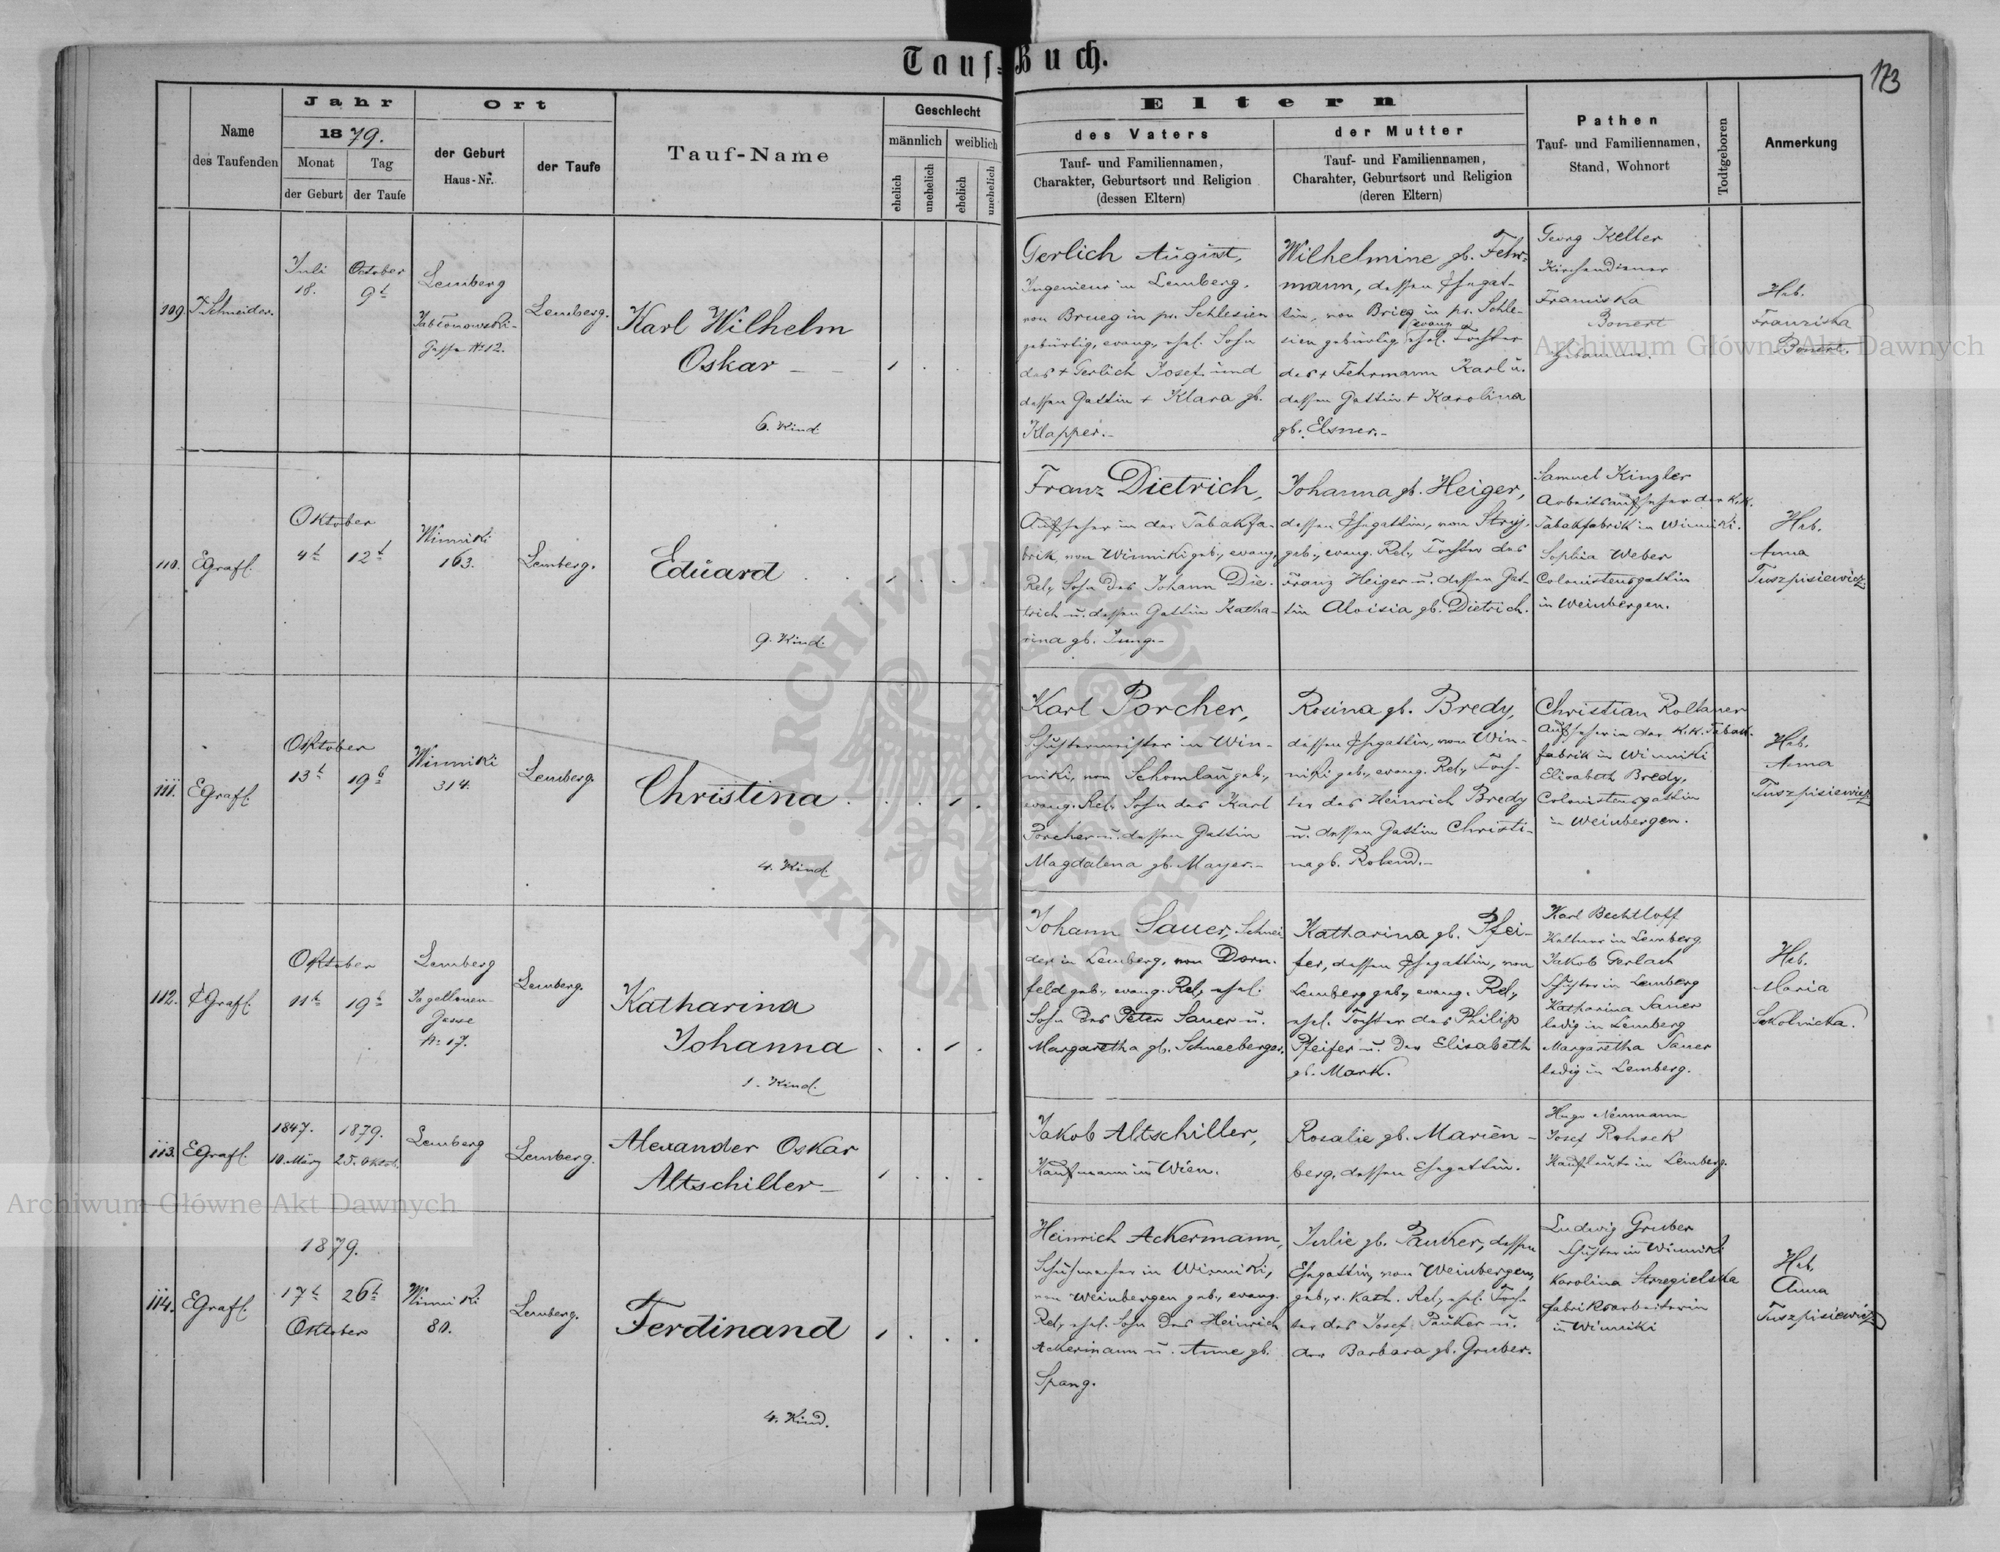 Tauf-Buch.
173
Name
des Taufenden
Jahr
1879.
Monat
Tag
der Geburt
der Taufe
Ort
der Geburt
Haus-Nr.
der Taufe
Tauf-Name
Geschlecht
männlich
weiblich
ehelich
unehelich
ehelich
unehelich
Eltern
des Vaters
Tauf- und Familiennamen,
Charakter, Geburtsort und Religion
(dessen Eltern)
der Mutter
Tauf- und Familiennamen,
Charahter, Geburtsort und Religion
(deren Eltern)
Pathen
Tauf- und Familiennamen,
Stand, Wohnort
Todtgeboren
Anmerkung
109.
Schneider.
Juli
18.
October
9t
Lemberg
Jabłonowski-
Gasse No 12.
Lemberg.
Karl Wilhelm
Oskar
6. Kind
Gerlich August,
Ingenieur in Lemberg,
von Brueg in pr. Schlesien
gebürtig, evang., ehel. Sohn
des + Gerlich Josef und
dessen Gattin + Klara gb.
Klapper.-
Wilhelmine gb. Fehr-
mann, dessen Ehegat-
tin, von Brieg in pr. Schle-
sien gebürtig, evang. ehel. Tochter
des + Fehrmann Karl u.
dessen Gattin + Karolina
gb. Elsner.-
Georg Keller
Kirchendiener
Franiska
Bonert
Hebamme.
Heb.
Franziska
Bonert.
110.
EGrafl.
Oktober
4t
12t
Winniki
163.
Lemberg.
Eduard
9. Kind.
Franz Dietrich,
Aufseher in der Tabakfa-
brik, von Winniki geb., evang.
Rel., Sohn des Johann Die-
trich u. dessen Gattin Katha-
rina gb. Jung.-
Johanna gb. Heiger,
dessen Ehegattin, von Stryj
geb., evang. Rel., Tochter des
Franz Heiger u. dessen Gat-
tin Aloisia gb. Dietrich.
Samuel Kinzler
Arbeitsaufseher der k.k.
Tabakfabrik in Winniki.
Sophia Weber
Colonistensgattin
in Weinbergen.
Heb.
Anna
Tuszpisiewicz.
111.
EGrafl.
Oktober
13t
19t
Winniki
314.
Lemberg.
Christina
4. Kind.
Karl Porcher,
Schustermeister in Win-
niki, von Schomlau geb.,
evang. Rel., Sohn des Karl
Porcher u. dessen Gattin
Magdalena gb. Mayer.-
Rosina gb. Bredy,
dessen Ehegattin, von Win-
niki geb., evang. Rel., Toch-
ter des Heinrich Bredy
u. dessen Gattin Christi-
na gb. Rolend.-
Christian Roltaner
Aufseher in der k.k. Tabak-
fabrik in Winniki
Elisabeth Bredy,
Colonistensgattin
in Weinbergen.
Heb.
Anna
Tuszpisiewicz.
112.
EGrafl.
Oktober
11t
19t
Lemberg
Jagellonen-
Gasse
No 17.
Lemberg.
Katharina
Johanna
1. Kind.
Johann Sauer, Schnei-
der in Lemberg, von Dorn-
feld geb., evang. Rel., ehel.
Sohn des Peter Sauer u.
Margaretha gb. Schneeberger.
Katharina gb. Pfei-
fer, dessen Ehegattin, von
Lemberg geb., evang. Rel.,
ehel. Tochter des Philip
Pfeifer u. der Elisabeth
gb. Mark.
Karl Bechtloff
Kellner in Lemberg.
Jakob Gerlach
Schuster in Lemberg
Katharina Sauer
ledig in Lemberg
Margaretha Sauer
ledig in Lemberg.
Heb.
Maria
Sokolnicka.
113.
EGrafl.
1847.
10. März
1879.
25. Oktob.
Lemberg
Lemberg.
Alexander Oskar
Altschiller
Jakob Altschiller,
Kaufmann in Wien.
Rosalie gb. Marien-
berg, dessen Ehegattin.
Hugo Neumann
Josef Rohsek
Kaufleute in Lemberg.
1879.
114.
EGrafl.
17t
26t
Oktober
Winniki
80.
Lemberg.
Ferdinand
4. Kind.
Heinrich Ackermann,
Schuhmacher in Winniki,
von Weinbergen geb., evang.
Rel., ehel. Sohn des Heinrich
Ackermann u. Anne gb.
Spang.
Julie gb. Pauker, dessen
Ehegattin, von Weinbergen
geb., r. Kath. Rel., ehel. Toch-
ter des Josef Pauker u.
der Barbara gb. Gruber.
Ludwig Gruber
Schuster in Winniki
Karolina Strzegielska
Fabriksarbeiterin
in Winniki
Heb.
Anna
Tuszpisiewicz
Archiwum Główne Akt Dawnych
Archiwum Główne Akt Dawnych
ARCHIWUM GŁÓWNE AKT DAWNYCH